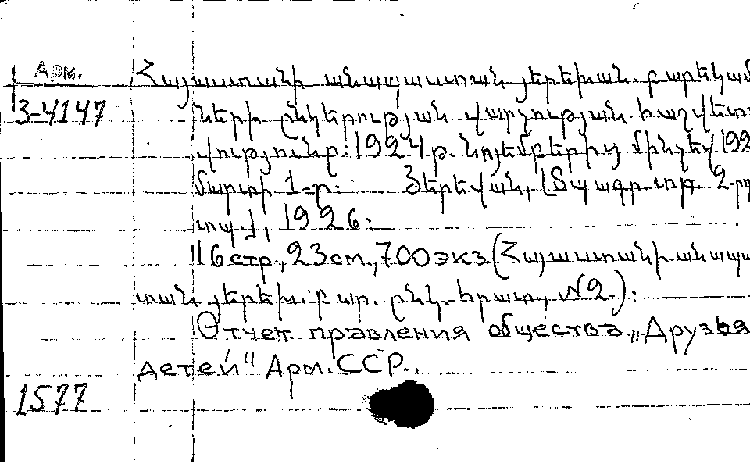 Арм. Հայաստանի անապաստան յերեխան. բարեկամ
3-4147 ների ընկերության վարչության հաշվետ
վությունը. 1924թ. նոյեմբերից մինչև 192
մարտի 1-ը. Յերեվան, [Տպագր. տր. 2-րդ
տպ.], 1926.
16стр., 23см., 700экз (Հայաստանի անապաս
տան յերեխ. բար. ընկ. հրատ., №2).
Отчет правления общества „Друзья
детей" Арм. ССР.
1577